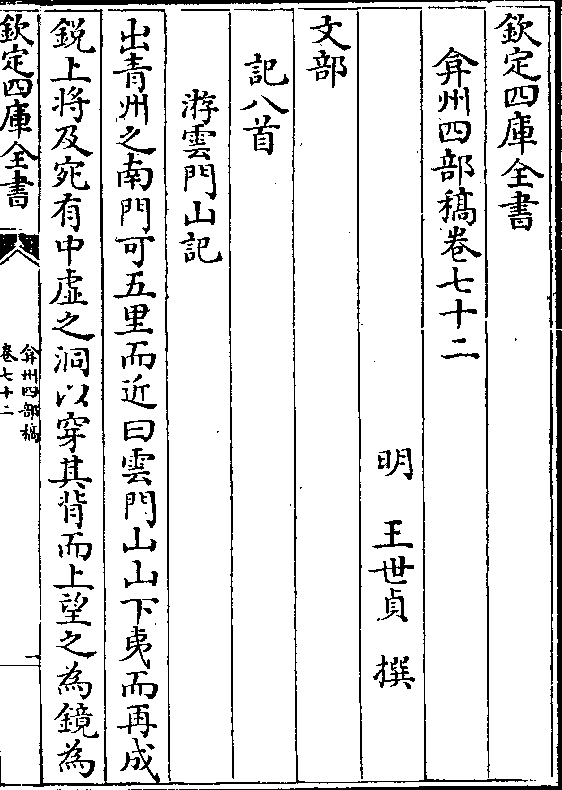 欽定四庫全書
弇州四部稿卷七十二
明　王世貞　撰
文部
記八首
游雲門山記
出青州之南門可五里而近曰雲門山山下夷而再成
鋭上将及宛有中虚之洞以穿其背而上望之為鏡為
欽定四庫全書
弇州四部稿
卷七十二
一